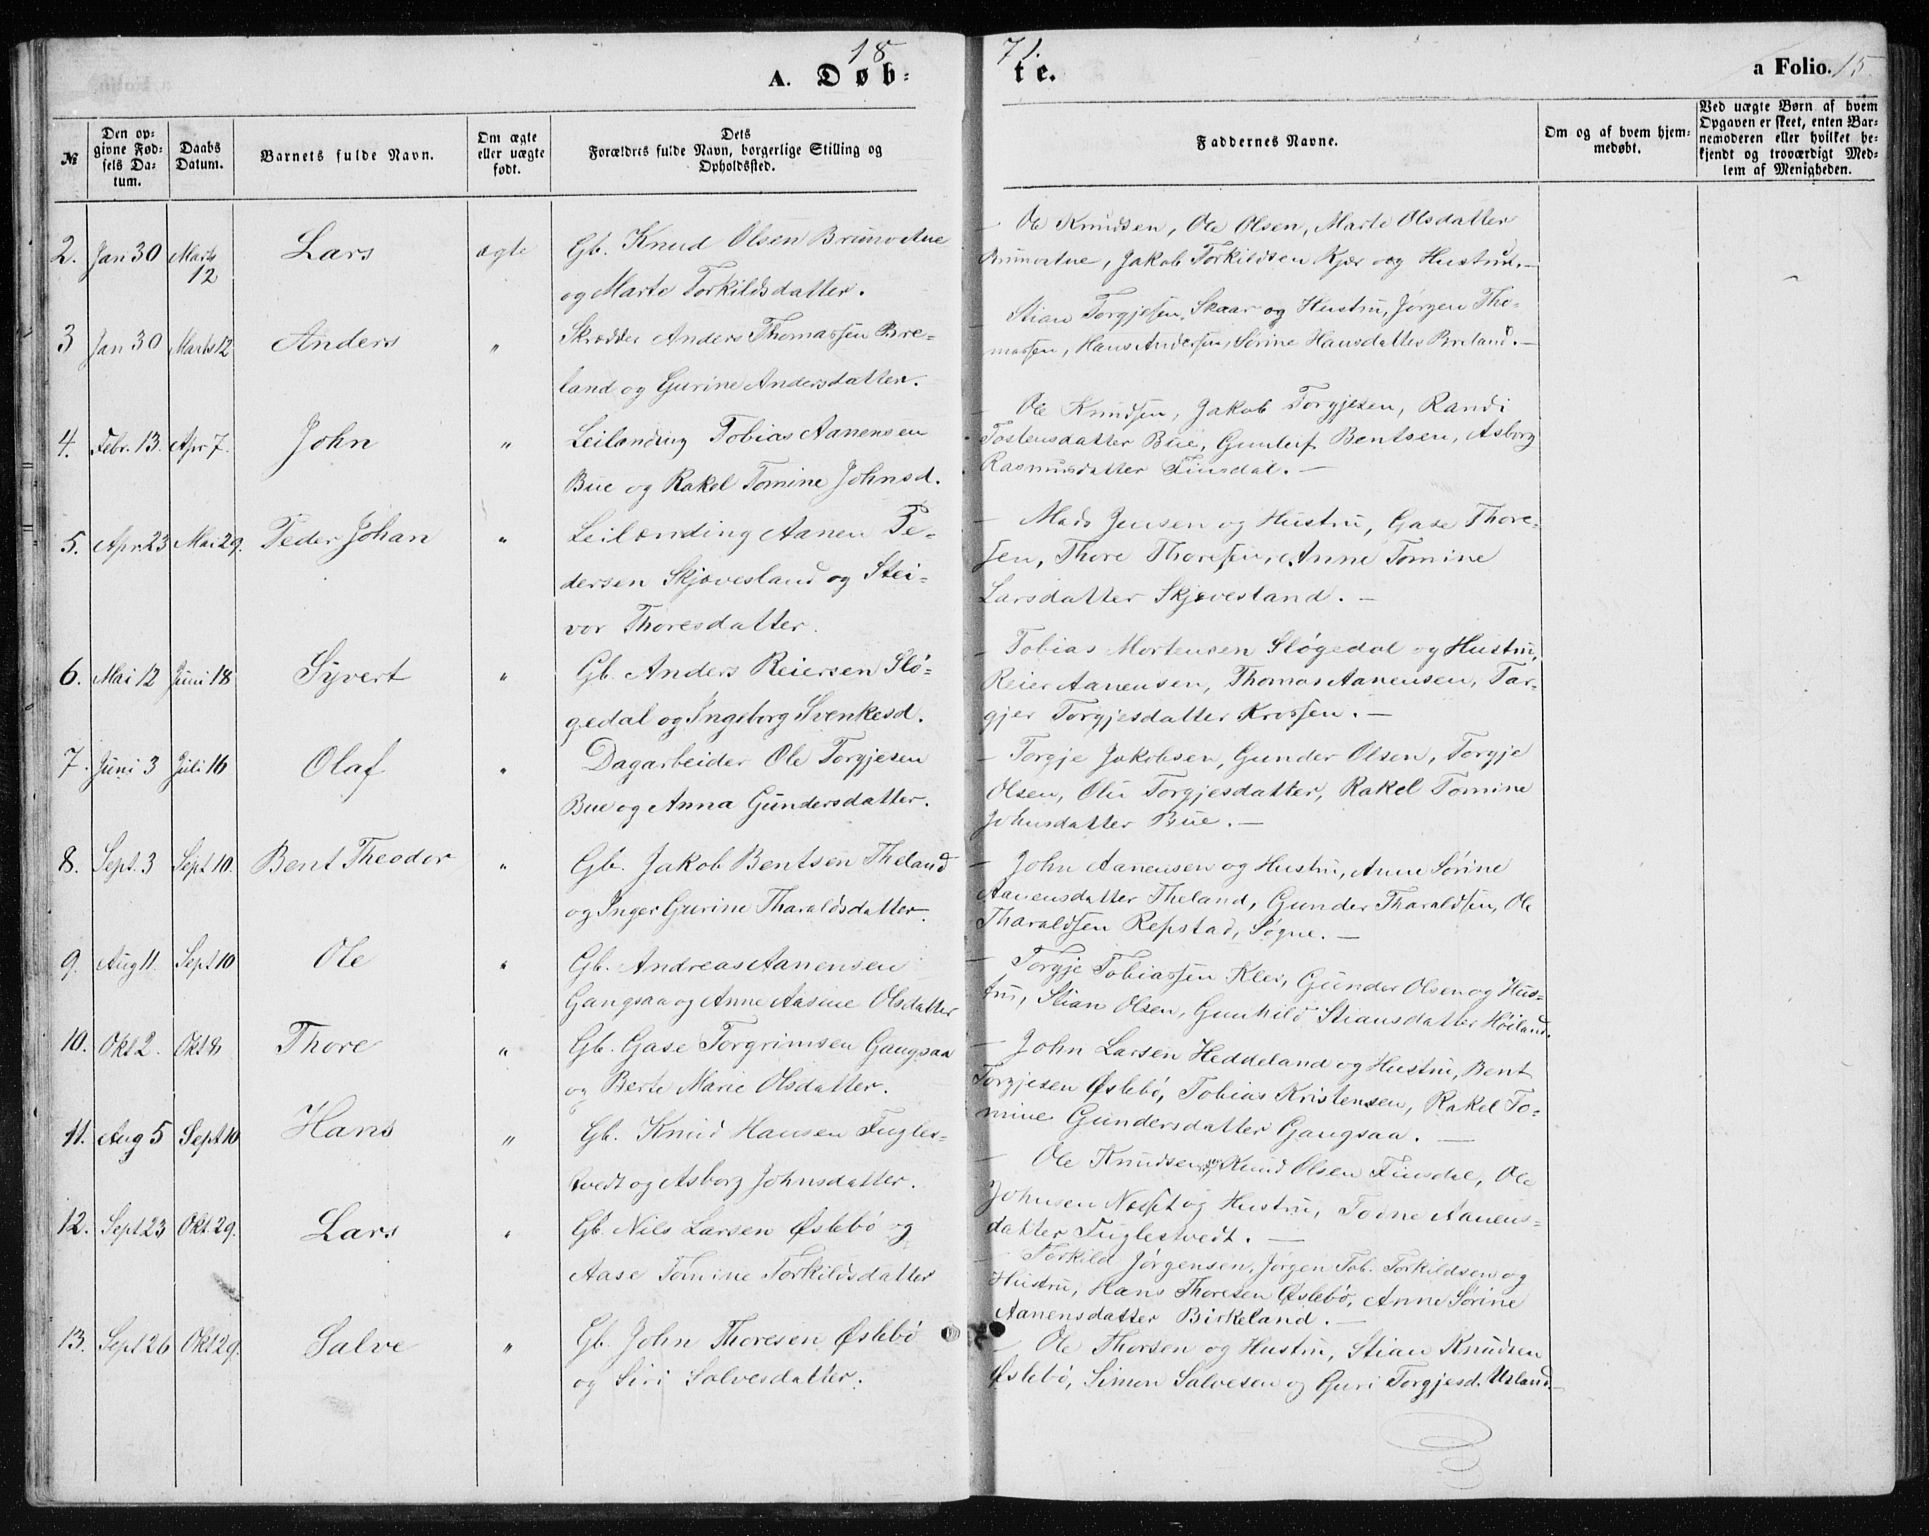 1871.
A. Døbte.
a Folio. 15.
№
Den opgivne Fødsels Datum.
Daabs Datum.
Barnets fulde Navn.
Om ægte eller uægte født.
Dets Forældres fulde Navn, borgerlige Stilling og Opholdssted.
Faddernes Navne.
Om og af hvem hjemmedøbt.
Ved uægte Børn af hvem Opgaven er skeet, enten Barnemoderen eller hvilket bekjendt og troværdigt Medlem af Menigheden.
2. Jan 30 Marts 12 Lars ægte Gb. Knud Olsen Brunvatne
og Marte Torkildsdatter.
— Ole Knudsen, Ole Olsen, Marte Olsdatter
Brunvatne, Jakob Torkildsen Kjær og Hustru. —
3 Jan 30 Marts 12 Anders " Skrædder Anders Thomassen Bre-
land og Gurine Andersdatter.
— Stian Torgjesen Skaar og Hustru, Jørgen Tho-
massen, Hans Andersen, Sørine Hansdatter Breland. —
4. Febr. 13. Apr 7. John " Leilænding Tobias Aanensen
Bue og Rakel Tomine Johnsd.
— Ole Knudsen, Jakob Torgjesen, Randi
Tostensdatter Bue, Gunluf Bentsen, Asborg
Rasmusdatter Finsdal. —
5. Apr. 23 Mai 29. Peder Johan " Leilænding Aanen Pe-
dersen Skjævesland og Stei-
vor Thoresdatter.
— Mads Jensen og Hustru, Gase Thore-
sen, Thore Thoresen, Anne Tomine
Larsdatter Skjævesland. —
6. Mai 12 Juni 18 Syvert " Gb. Anders Reiersen Slø-
gedal og Ingeborg Svenkesd.
— Tobias Mortensen Sløgedal og Hustru,
Reier Aanensen, Thomas Aanensen, Tar-
gjer Torgjesdatter Krossen. —
7. Juni 3 Juli 16 Olaf " Dagarbeider Ole Torgjesen
Bue og Anna Gundersdatter.
— Torgje Jakobsen, Gunder Olsen, Torgje
Olsen, Olu Torgjesdatter, Rakel Tomine
Johnsdatter Bue. —
8. Sept. 3 Sept 10. Bent Theodor " Gb. Jakob Bentsen Theland
og Inger Gurine Tharaldsdatter.
— John Aanensen og Hustru, Anne Sørine
Aanensdatter Theland, Gunder Tharaldsen, Ole
Tharaldsen Repstad, Søgne. —
9. Aug 11. Sept 10 Ole " Gb. Andreas Aanensen
Gangsaa og Anne Aasine Olsdatter
— Torgje Tobiassen Klev, Gunder Olsen og Hus-
tru, Stian Olsen, Gunhild Stiansdatter Høiland.
10. Okt 2. Okt 8 Thore " Gb. Gase Torgrimsen Gangsaa
og Berte Marie Olsdatter.
— John Larsen Heddeland og Hustru, Bent
Torgjesen Øslebø, Tobias Kristensen, Rakel To-
mine Gundersdatter Gangsaa. —
11. Aug 5 Sept 10 Hans " Gb. Knud Hansen Fugles-
tvedt og Asborg Johnsdatter.
— Ole Knudsen og Knud Olsen Finsdal, Ole
Johnsen Næset og Hustru, Todne Aanens-
datter Fuglestvedt. —
12. Sept 23 Okt. 29. Lars " Gb. Nils Larsen Øslebø og
Aase Tomine Torkildsdatter
— Torkild Jørgensen, Jørgen Tob. Torkildsen og
Hustru, Hans Thoresen Øslebø, Anne Sørine
Aanensdatter Birkeland. —
13. Sept 26 Okt 29. Salve " Gb. John Thoresen Øslebø
og Siri Salvesdatter.
— Ole Thorsen og Hustru, Stian Knudsen
Øslebø, Simon Salvesen og Guri Torgjesd. Usland. —